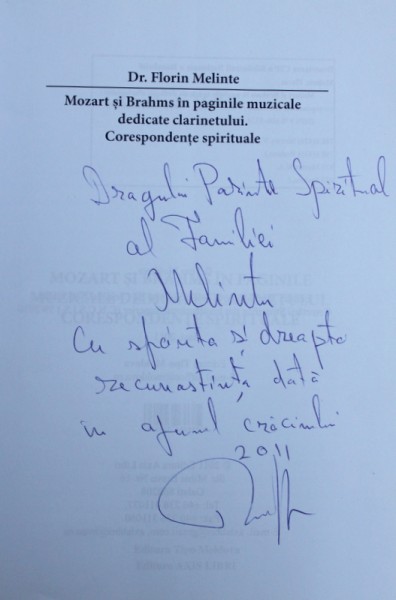 Dr. Florin Melinte
Mozart și Brahms în paginile muzicale
dedicate clarinetului.
Corespondențe spirituale
Dragului Parinte Spiritual
al Familiei
Melinte
Cu sporita si dreapta
recunastință dată
in ajunul crăciunului
2011